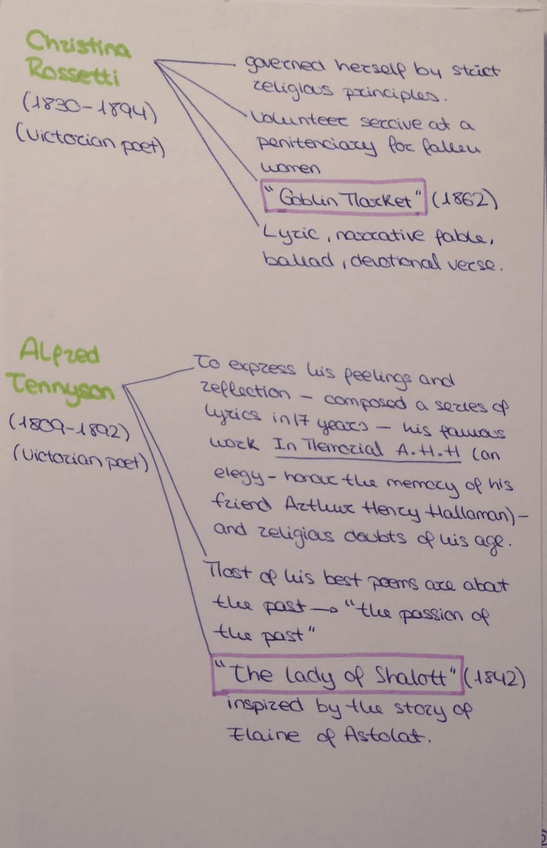 Christina
Rossetti
(1830-1894)
(Victorian poet)
governed herself by strict
religious principles.
Volunteer sercive at a
penitenciary for fallen
women
"Goblin Market" (1862)
Lyric, narrative fable,
ballad, devotional verse.
Alfred
Tennyson
(1809-1892)
(Victorian poet)
To express his feelings and
reflection - composed a series of
lyrics in 17 years - his famous
work In Memorial A.H.H (an
elegy - honour the memory of his
friend Arthur Henry Hallaman) -
and religious doubts of his age.
Most of his best poems are about
the past → "the passion of
the past"
"The lady of Shalott" (1842)
inspired by the story of
Elaine of Astolat.